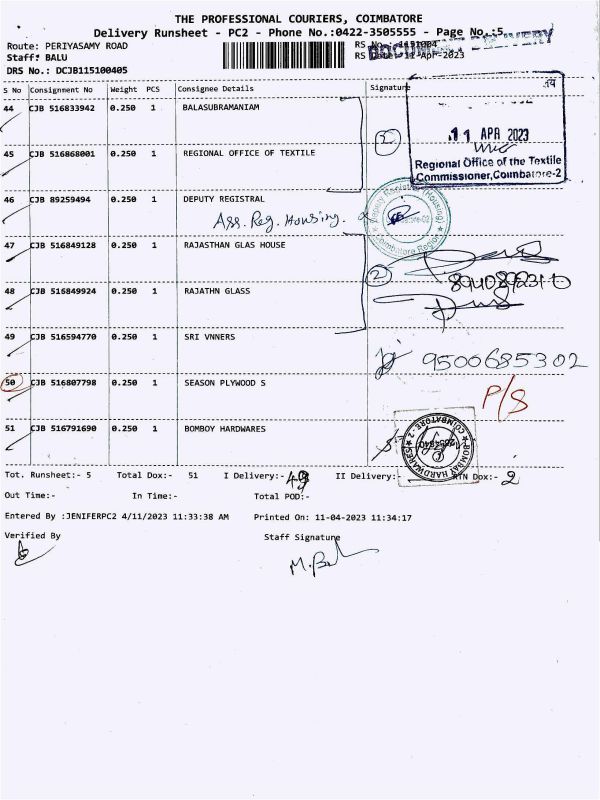 THE PROFESSIONAL COURIERS, COIMBATORE
Delivery Runsheet - PC2 - Phone No.:0422-3505555 - Page No.:5
DOCUMENT DELIVERY
Route: PERIYASAMY ROAD
RS No.
Staff: BALU
RS Date: 11-Apr-2023
DRS No.: DCJB115100405
S No Consignment No Weight PCS Consignee Details Signature
44 CJB 516833942 0.250 1 BALASUBRAMANIAM
11 APR 2023
45 CJB 516868001 0.250 1 REGIONAL OFFICE OF TEXTILE
Regional Office of the Textile
Commissioner, Coimbatore-2
46 CJB 89259494 0.250 1 DEPUTY REGISTRAL
Ass. Reg. Housing.
Deputy Registrar (Housing)
Coimbatore Region
47 CJB 516849128 0.250 1 RAJASTHAN GLAS HOUSE
2
48 CJB 516849924 0.250 1 RAJATHN GLASS
49 CJB 516594770 0.250 1 SRI VNNERS
9500685302
50 CJB 516807798 0.250 1 SEASON PLYWOOD S
P/S
51 CJB 516791690 0.250 1 BOMBOY HARDWARES
BOMBAY HARDWARES
COIMBATORE - 2
Tot. Runsheet:- 5 Total Dox:- 51 I Delivery:- 49 II Delivery:- RTN Dox:- 2
Out Time:- In Time:- Total POD:-
Entered By :JENIFERPC2 4/11/2023 11:33:38 AM Printed On: 11-04-2023 11:34:17
Verified By Staff Signature
M.Bal